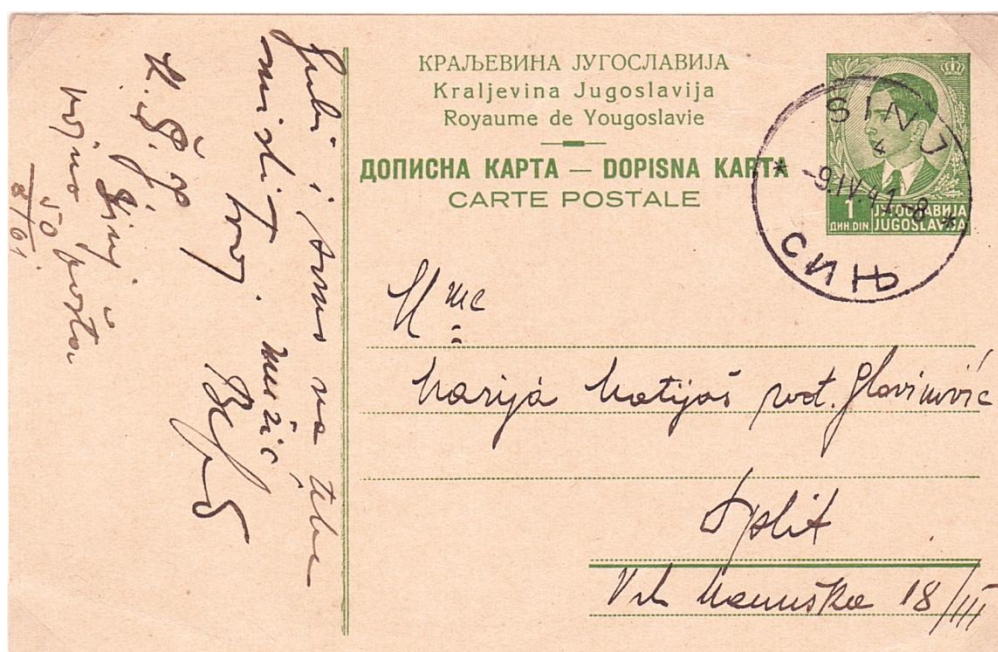 КРАЉЕВИНА ЈУГОСЛАВИЈА
Kraljevina Jugoslavija
Royaume de Yougoslavie
ДОПИСНА КАРТА — DOPISNA KARTA
CARTE POSTALE
SINJ
4
* -9.IV.41-8 *
СИЊ
1
ДИН. DIN
ЈУГОСЛАВИЈА
JUGOSLAVIJA
Mme
Marija Matijaš rođ. Glavinović
Split
Vrh Manuška 18/III
ljubi i na tebe
misli tvoj mužić
Sinj
vojno pošta
50